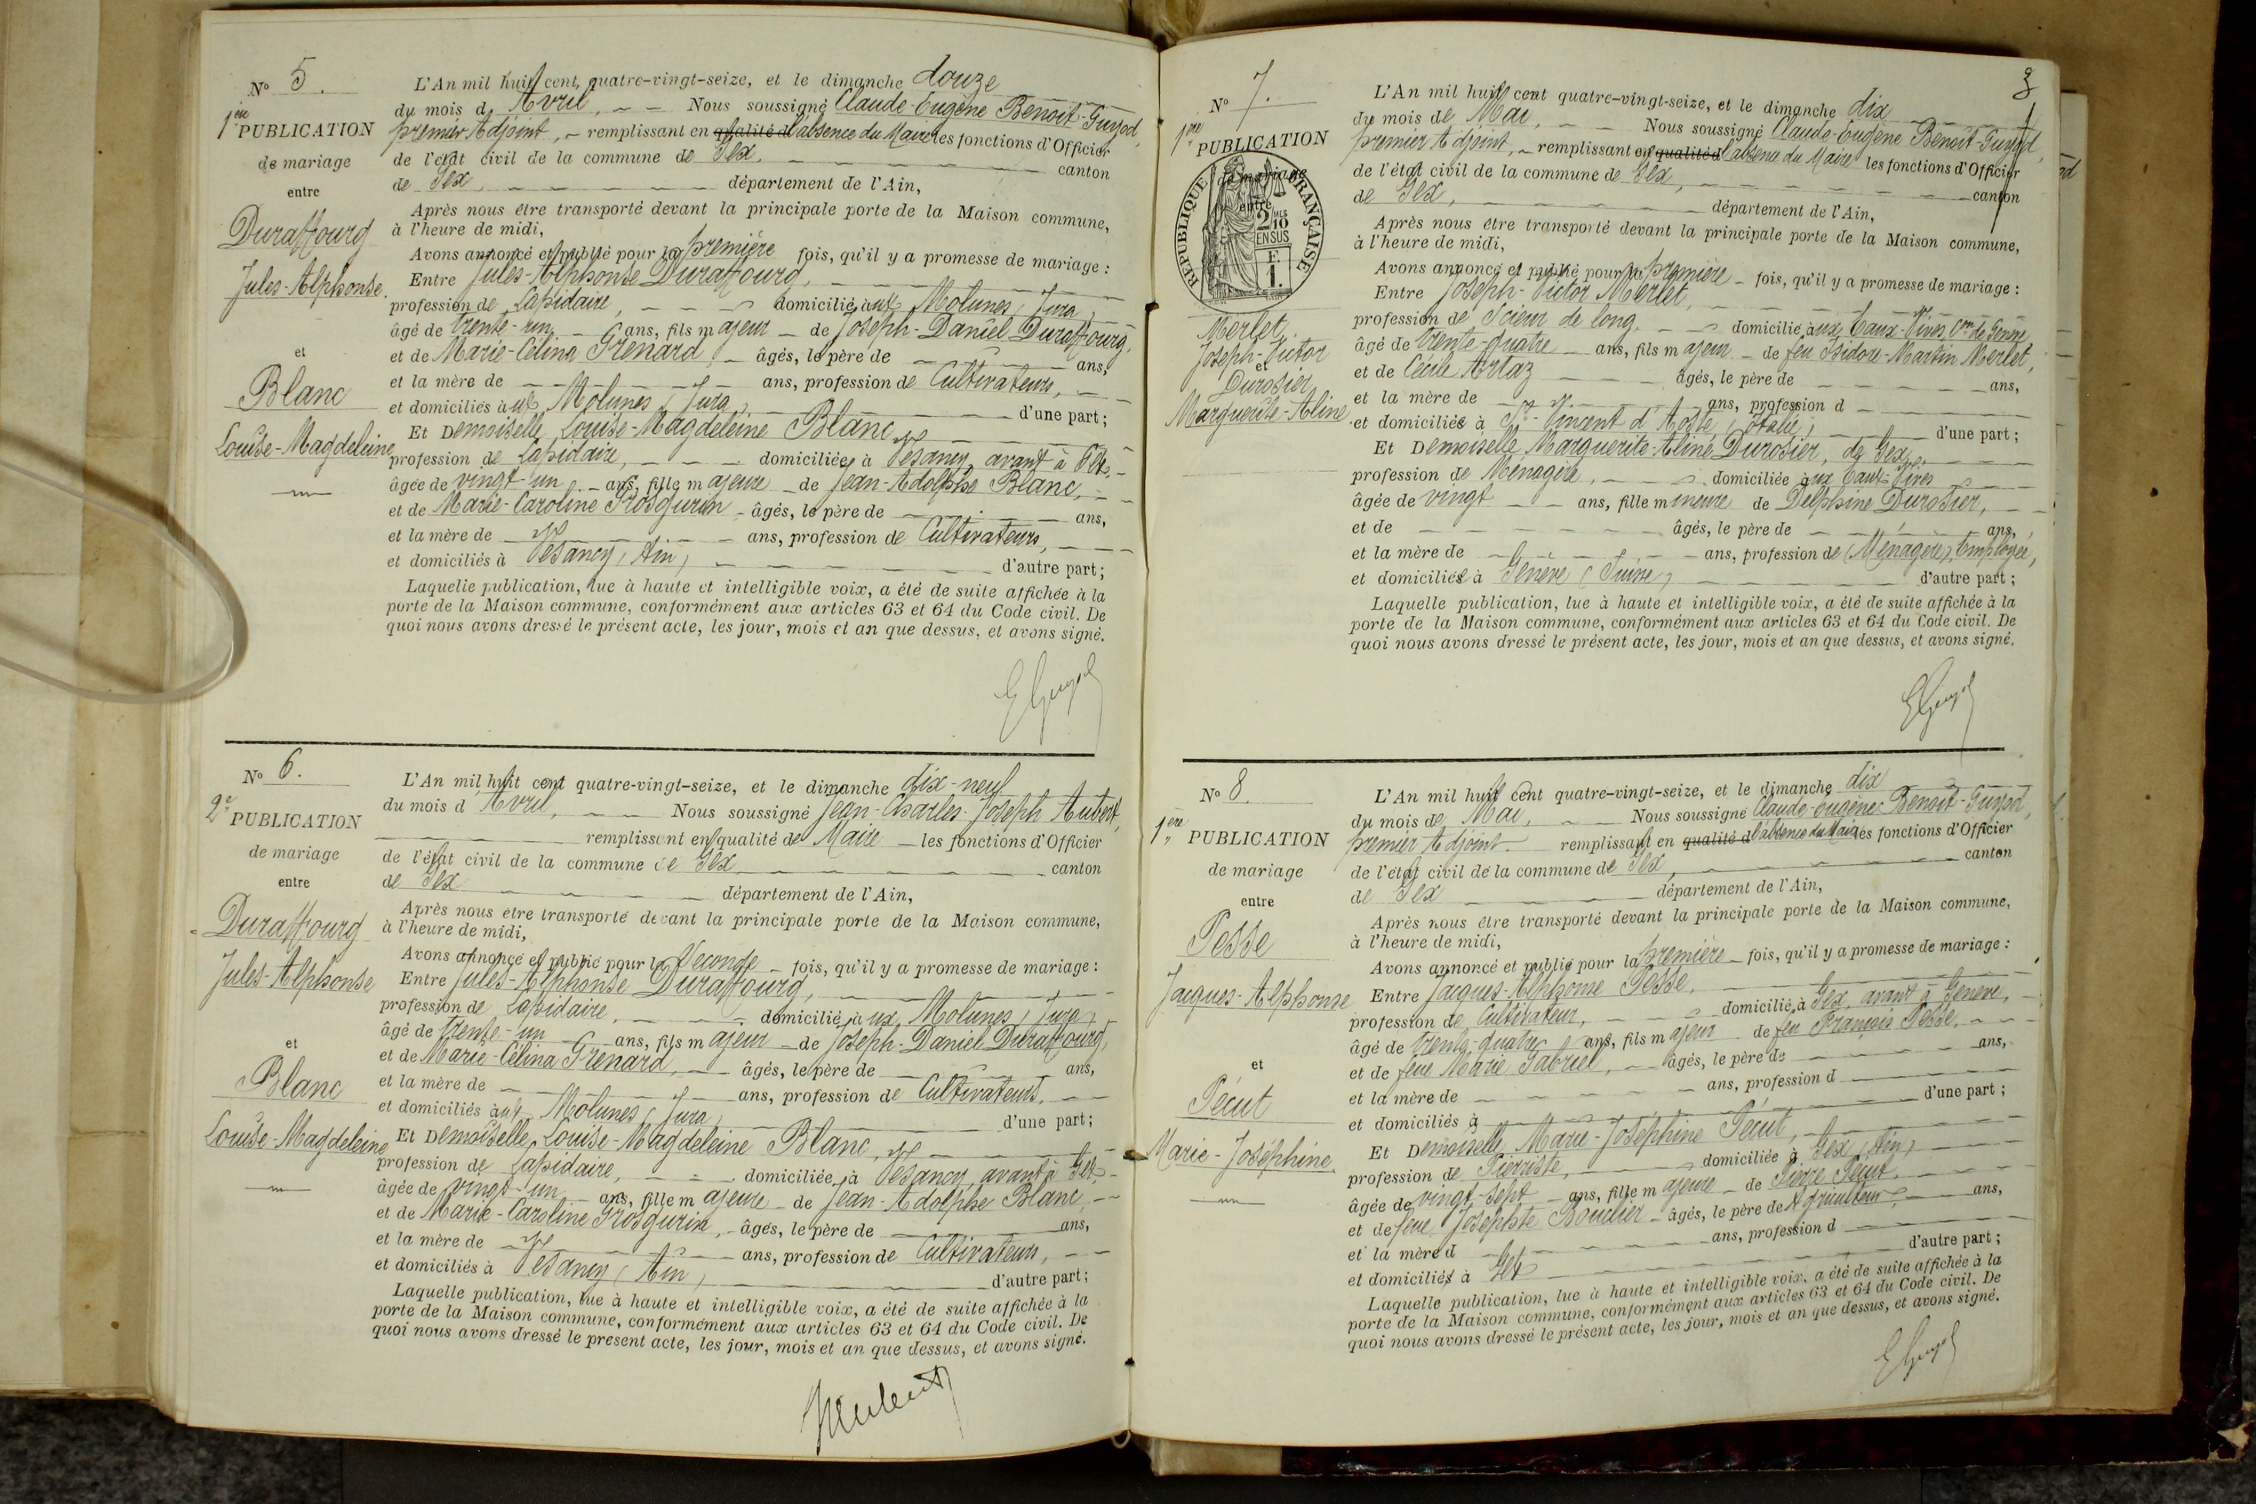 N° 5.
1ère PUBLICATION
de mariage
entre
Duraffourg
Jules-Alphonse.
et
Blanc
Louise-Magdeleine
L'An mil huit cent quatre-vingt-seize, et le dimanche douze
du mois d Avril, Nous soussigné Claude-Eugène Benoit-Guyod,
premier Adjoint, remplissant en qualité d l'absence du Maire les fonctions d'Officier
de l'état civil de la commune de Gex, canton
de Gex, département de l'Ain,
Après nous être transporté devant la principale porte de la Maison commune,
à l'heure de midi,
Avons annoncé et publié pour la première fois, qu'il y a promesse de mariage :
Entre Jules-Alphonse Duraffourg,
profession de Lapidaire, domicilié aux Molunes (Jura)
âgé de trente-un ans, fils majeur de Joseph-Daniel Duraffourg,
et de Marie-Célina Grenard, âgés, le père de ans,
et la mère de ans, profession de Cultivateurs,
et domiciliés aux Molunes (Jura) d'une part ;
Et Demoiselle Louise-Magdeleine Blanc,
profession de Lapidaire, domiciliée à Vesancy, avant à Gex,
âgée de vingt-un ans, fille majeure de Jean-Adolphe Blanc,
et de Marie-Caroline Grosgurin âgés, le père de ans,
et la mère de ans, profession de Cultivateurs,
et domiciliés à Vesancy (Ain) d'autre part ;
Laquelle publication, lue à haute et intelligible voix, a été de suite affichée à la
porte de la Maison commune, conformément aux articles 63 et 64 du Code civil. De
quoi nous avons dressé le présent acte, les jour, mois et an que dessus, et avons signé.
EGuyod
N° 6.
2e PUBLICATION
de mariage
entre
Duraffourg
Jules-Alphonse
et
Blanc
Louise-Magdeleine
L'An mil huit cent quatre-vingt-seize, et le dimanche dix-neuf
du mois d Avril, Nous soussigné Jean-Charles-Joseph Aubert,
remplissant en qualité de Maire les fonctions d'Officier
de l'état civil de la commune de Gex canton
de Gex département de l'Ain,
Après nous être transporté devant la principale porte de la Maison commune,
à l'heure de midi,
Avons annoncé et publié pour la Seconde fois, qu'il y a promesse de mariage :
Entre Jules-Alphonse Duraffourg,
profession de Lapidaire, domicilié aux Molunes (Jura)
âgé de trente-un ans, fils majeur de Joseph-Daniel Duraffourg,
et de Marie-Célina Grenard, âgés, le père de ans,
et la mère de ans, profession de Cultivateurs,
et domiciliés aux Molunes (Jura) d'une part ;
Et Demoiselle Louise-Magdeleine Blanc,
profession de Lapidaire, domiciliée à Vesancy, avant à Gex,
âgée de vingt-un ans, fille majeure de Jean-Adolphe Blanc,
et de Marie-Caroline Grosgurin, âgés, le père de ans,
et la mère de ans, profession de Cultivateurs,
et domiciliés à Vesancy (Ain) d'autre part ;
Laquelle publication, lue à haute et intelligible voix, a été de suite affichée à la
porte de la Maison commune, conformément aux articles 63 et 64 du Code civil. De
quoi nous avons dressé le présent acte, les jour, mois et an que dessus, et avons signé.
3
N° 7.
1ère PUBLICATION
de mariage
entre
RÉPUBLIQUE FRANÇAISE
2 MES 10
EN SUS
F.
1.
Merlet
Joseph-Victor
et
Durosier
Marguerite-Aline
L'An mil huit cent quatre-vingt-seize, et le dimanche dix
du mois de Mai, Nous soussigné Claude-Eugène Benoit-Guyod,
premier Adjoint, remplissant en qualité d l'absence du Maire les fonctions d'Officier
de l'état civil de la commune de Gex, canton
de Gex, département de l'Ain,
Après nous être transporté devant la principale porte de la Maison commune,
à l'heure de midi,
Avons annoncé et publié pour la première fois, qu'il y a promesse de mariage :
Entre Joseph-Victor Merlet,
profession de Scieur de long, domicilié aux Eaux-Vives, Con de Genève
âgé de trente-quatre ans, fils majeur de feu Isidore-Martin Merlet,
et de Cécile Artaz âgés, le père de ans,
et la mère de ans, profession d
et domiciliée à St-Vincent d'Aoste (Italie) d'une part ;
Et Demoiselle Marguerite-Aline Durosier, de Gex,
profession de Ménagère, domiciliée aux Eaux-Vives
âgée de vingt ans, fille mineure de Delphine Durosier,
et de âgés, le père de ans,
et la mère de ans, profession de (Ménagère) Employée,
et domiciliée à Genève (Suisse) d'autre part ;
Laquelle publication, lue à haute et intelligible voix, a été de suite affichée à la
porte de la Maison commune, conformément aux articles 63 et 64 du Code civil. De
quoi nous avons dressé le présent acte, les jour, mois et an que dessus, et avons signé.
EGuyod
N° 8.
1ère PUBLICATION
de mariage
entre
Pesse
Jacques-Alphonse
et
Pécut
Marie-Joséphine
L'An mil huit cent quatre-vingt-seize, et le dimanche dix
du mois de Mai, Nous soussigné Claude-Eugène Benoit-Guyod,
premier Adjoint remplissant en qualité d l'absence du Maire les fonctions d'Officier
de l'état civil de la commune de Gex, canton
de Gex département de l'Ain,
Après nous être transporté devant la principale porte de la Maison commune,
à l'heure de midi,
Avons annoncé et publié pour la première fois, qu'il y a promesse de mariage :
Entre Jacques-Alphonse Pesse,
profession de Cultivateur, domicilié à Gex, avant à Genève,
âgé de trente-quatre ans, fils majeur de feu François Pesse,
et de feue Marie Gabriel, âgés, le père de ans,
et la mère de ans, profession d
et domiciliés à d'une part ;
Et Demoiselle Marie-Joséphine Pécut,
profession de Pierriste, domiciliée à Gex (Ain)
âgée de vingt-sept ans, fille majeure de Pierre Pécut,
et de feue Josephte Boudier âgés, le père de ans,
et la mère d ans, profession d
et domiciliés à Gex d'autre part ;
Laquelle publication, lue à haute et intelligible voix, a été de suite affichée à la
porte de la Maison commune, conformément aux articles 63 et 64 du Code civil. De
quoi nous avons dressé le présent acte, les jour, mois et an que dessus, et avons signé.
EGuyod